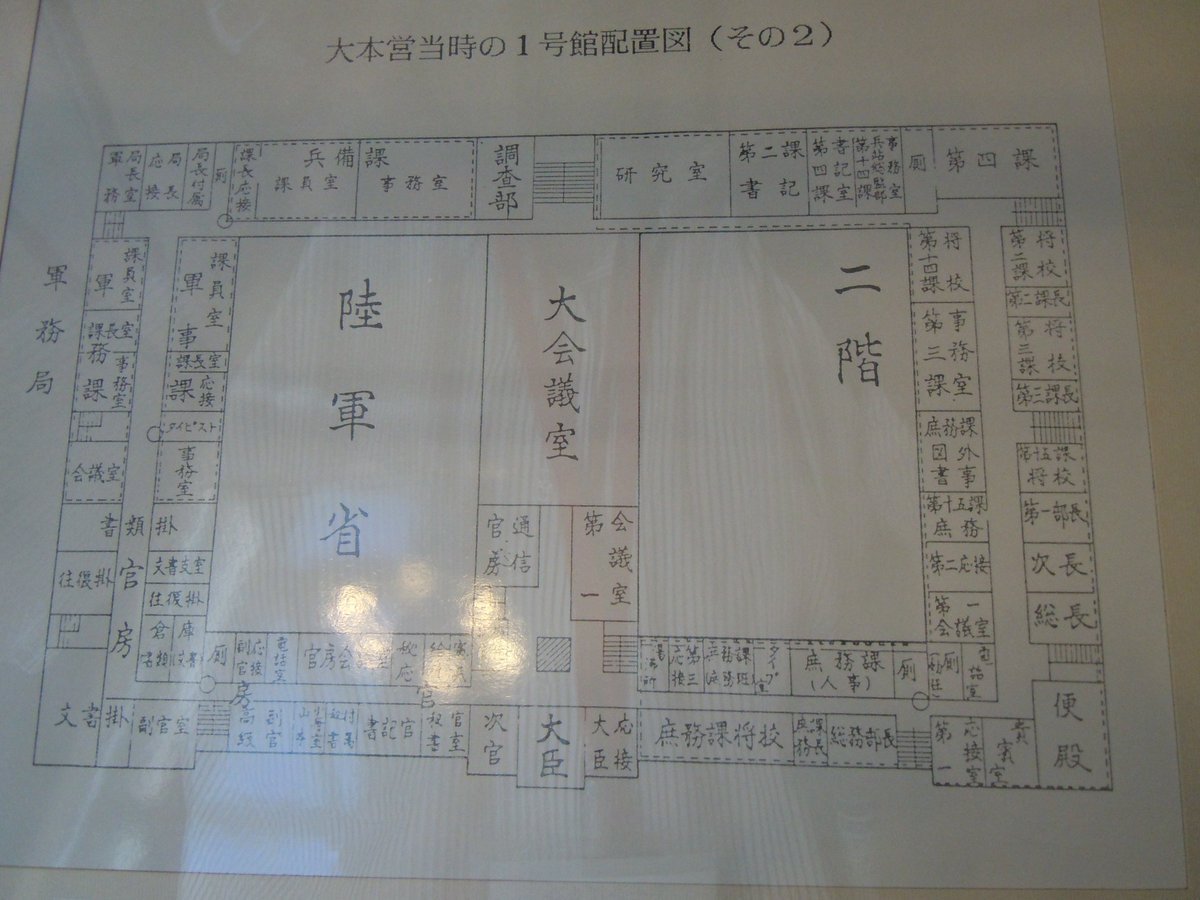 大本営当時の1号館配置図(その2)
軍務局長室
応接局長
局長付属
厠
課長応接
兵備課
課員室
事務室
調査部
研究室
第二課書記
第四課書記室
第十四課
兵站総監部
事務室
厠
第四課
軍務局
軍務課
課員室
課長室
事務室
会議室
軍事課
課員室
課長室
応接
タイピスト
事務室
陸軍省
大会議室
二階
第十四課将校
第三課事務室
庶務課
図書
外事
第十五課庶務
第二応接
第一会議室
第二課将校
第二課長
第三課将校
第三課長
第十五課将校
第一部長
次長
総長
便殿
官房
書類掛
往復掛
文書支室
往復掛
倉庫
文書掛
副官室
厠
副官応接
電話室
官房
通信官房
第一会議室
高級副官
書記官
秘書官室
次官
大臣
大臣応接
応接第三
タイプ室
庶務課
(人事)
厠
厠
電話室
庶務課将校
庶務課長
総務部長
第一応接室
貴賓室